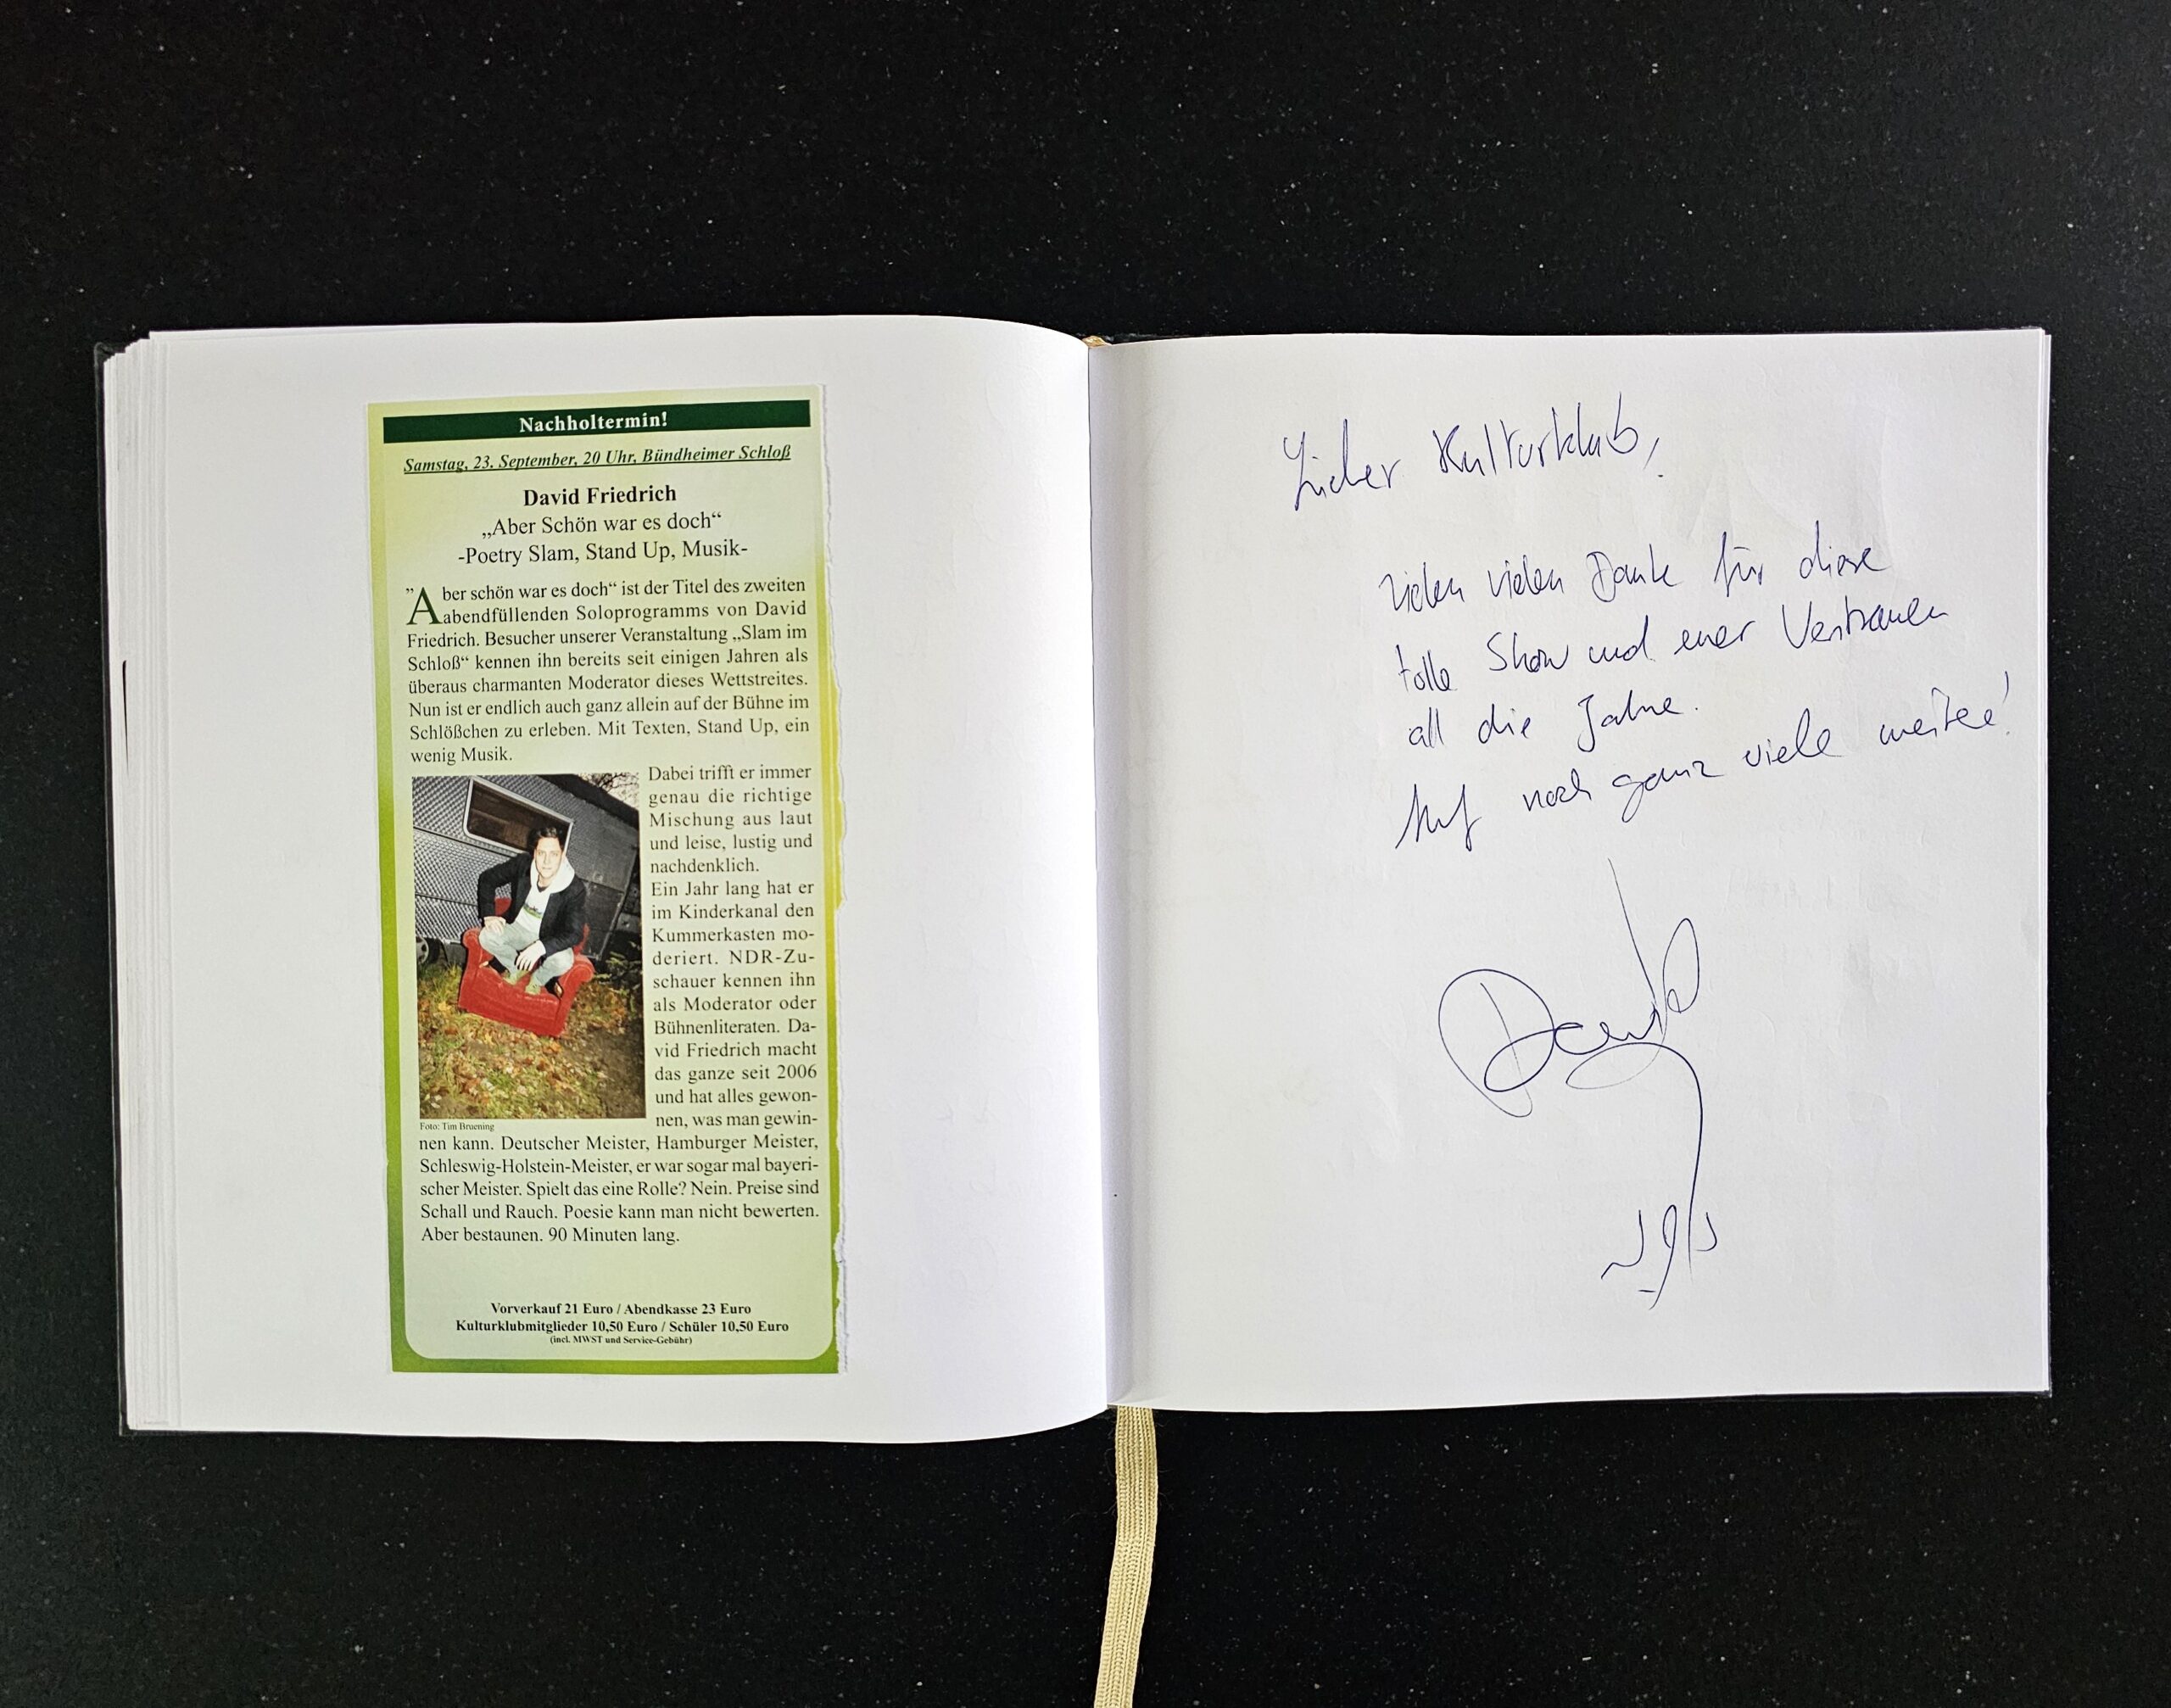 Nachholtermin!
Samstag, 23. September, 20 Uhr, Bündheimer Schloß
David Friedrich
„Aber Schön war es doch“
-Poetry Slam, Stand Up, Musik-
”Aber schön war es doch“ ist der Titel des zweiten
abendfüllenden Soloprogramms von David
Friedrich. Besucher unserer Veranstaltung „Slam im
Schloß“ kennen ihn bereits seit einigen Jahren als
überaus charmanten Moderator dieses Wettstreites.
Nun ist er endlich auch ganz allein auf der Bühne im
Schlößchen zu erleben. Mit Texten, Stand Up, ein
wenig Musik.
Dabei trifft er immer
genau die richtige
Mischung aus laut
und leise, lustig und
nachdenklich.
Ein Jahr lang hat er
im Kinderkanal den
Kummerkasten mo-
deriert. NDR-Zu-
schauer kennen ihn
als Moderator oder
Bühnenliteraten. Da-
vid Friedrich macht
das ganze seit 2006
und hat alles gewon-
nen, was man gewin-
Foto: Tim Bruening
nen kann. Deutscher Meister, Hamburger Meister,
Schleswig-Holstein-Meister, er war sogar mal bayeri-
scher Meister. Spielt das eine Rolle? Nein. Preise sind
Schall und Rauch. Poesie kann man nicht bewerten.
Aber bestaunen. 90 Minuten lang.
Vorverkauf 21 Euro / Abendkasse 23 Euro
Kulturklubmitglieder 10,50 Euro / Schüler 10,50 Euro
(incl. MWST und Service-Gebühr)
Lieber Kulturklub,
vielen vielen Dank für diese
tolle Show und euer Vertrauen
all die Jahre.
Auf noch ganz viele weitere!
David